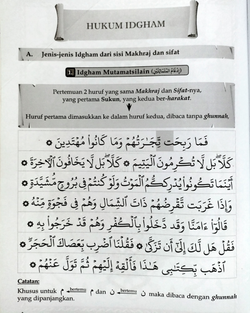 HUKUM IDGHAM
A. Jenis-jenis Idgham dari sisi Makhraj dan sifat
1. Idgham Mutamatsilain
Pertemuan 2 huruf yang sama Makhraj dan Sifat-nya,
yang pertama Sukun, yang kedua ber-harakat.
Huruf pertama dimasukkan ke dalam huruf kedua, dibaca tanpa ghunnah.
فَمَا رَبِحَت تِّجَٰرَتُهُمْ وَمَا كَانُوا۟ مُهْتَدِينَ
كَلَّا ۖ بَل لَّا تُكْرِمُونَ ٱلْيَتِيمَ كَلَّا ۖ بَل لَّا يَخَافُونَ ٱلْـَٔاخِرَةَ
أَيْنَمَا تَكُونُوا۟ يُدْرِككُّمُ ٱلْمَوْتُ وَلَوْ كُنتُمْ فِى بُرُوجٍ مُّشَيَّدَةٍ
وَإِذَا غَرَبَت تَّقْرِضُهُمْ ذَاتَ ٱلشِّمَالِ وَهُمْ فِى فَجْوَةٍ مِّنْهُ
قَالُوٓا۟ ءَامَنَّا وَقَد دَّخَلُوا۟ بِٱلْكُفْرِ وَهُمْ قَدْ خَرَجُوا۟ بِهِۦ
فَقُلْ هَل لَّكَ إِلَىٰٓ أَن تَزَكَّىٰ فَقُلْنَا ٱضْرِب بِّعَصَاكَ ٱلْحَجَرَ
ٱذْهَب بِّكِتَٰبِى هَٰذَا فَأَلْقِهْ إِلَيْهِمْ ثُمَّ تَوَلَّ عَنْهُمْ
Catatan:
Khusus untuk م bertemu م dan ن bertemu ن maka dibaca dengan ghunnah
yang dipanjangkan.